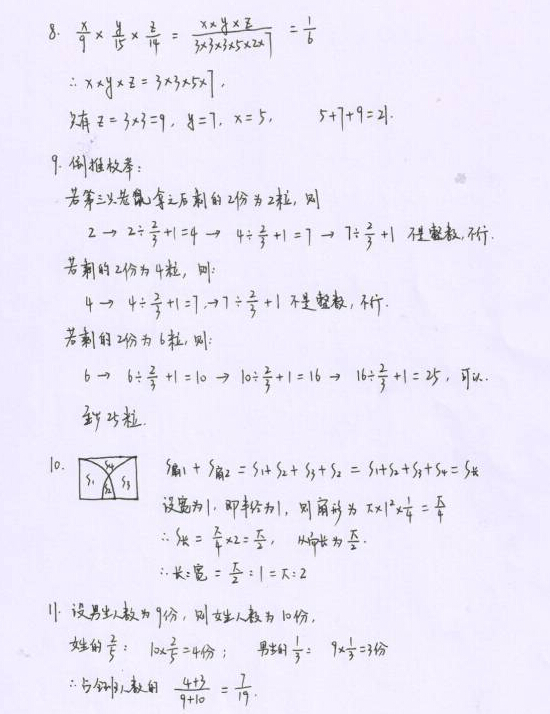 8. x/9 × y/15 × z/14 = x×y×z / 3×3×3×5×2×7 = 1/6
∴ x×y×z = 3×3×5×7,
只有 z = 3×3=9, y=7, x=5, 5+7+9=21.
9. 倒推枚举:
若第三次老鼠拿之后剩的2份为2粒, 则
2 → 2÷2/3+1=4 → 4÷2/3+1=7 → 7÷2/3+1 不是整数, 不行.
若剩的2份为4粒, 则:
4 → 4÷2/3+1=7, → 7÷2/3+1 不是整数, 不行.
若剩的2份为6粒, 则:
6 → 6÷2/3+1=10 → 10÷2/3+1=16 → 16÷2/3+1=25, 可以.
至少25粒.
10. S1 S2 S3 S4 S扇1 + S扇2 = S1+S2+S3+S2 = S1+S2+S3+S4 = S长
设宽为1, 即半径为1, 则扇形为 π×1²×1/4 = π/4
∴ S长 = π/4×2 = π/2, 从而长为 π/2.
∴ 长:宽 = π/2 : 1 = π : 2
11. 设男生人数为9份, 则女生人数为10份,
女生的2/5: 10×2/5=4份; 男生的1/3: 9×1/3=3份
∴ 占全班人数的 4+3 / 9+10 = 7/19.